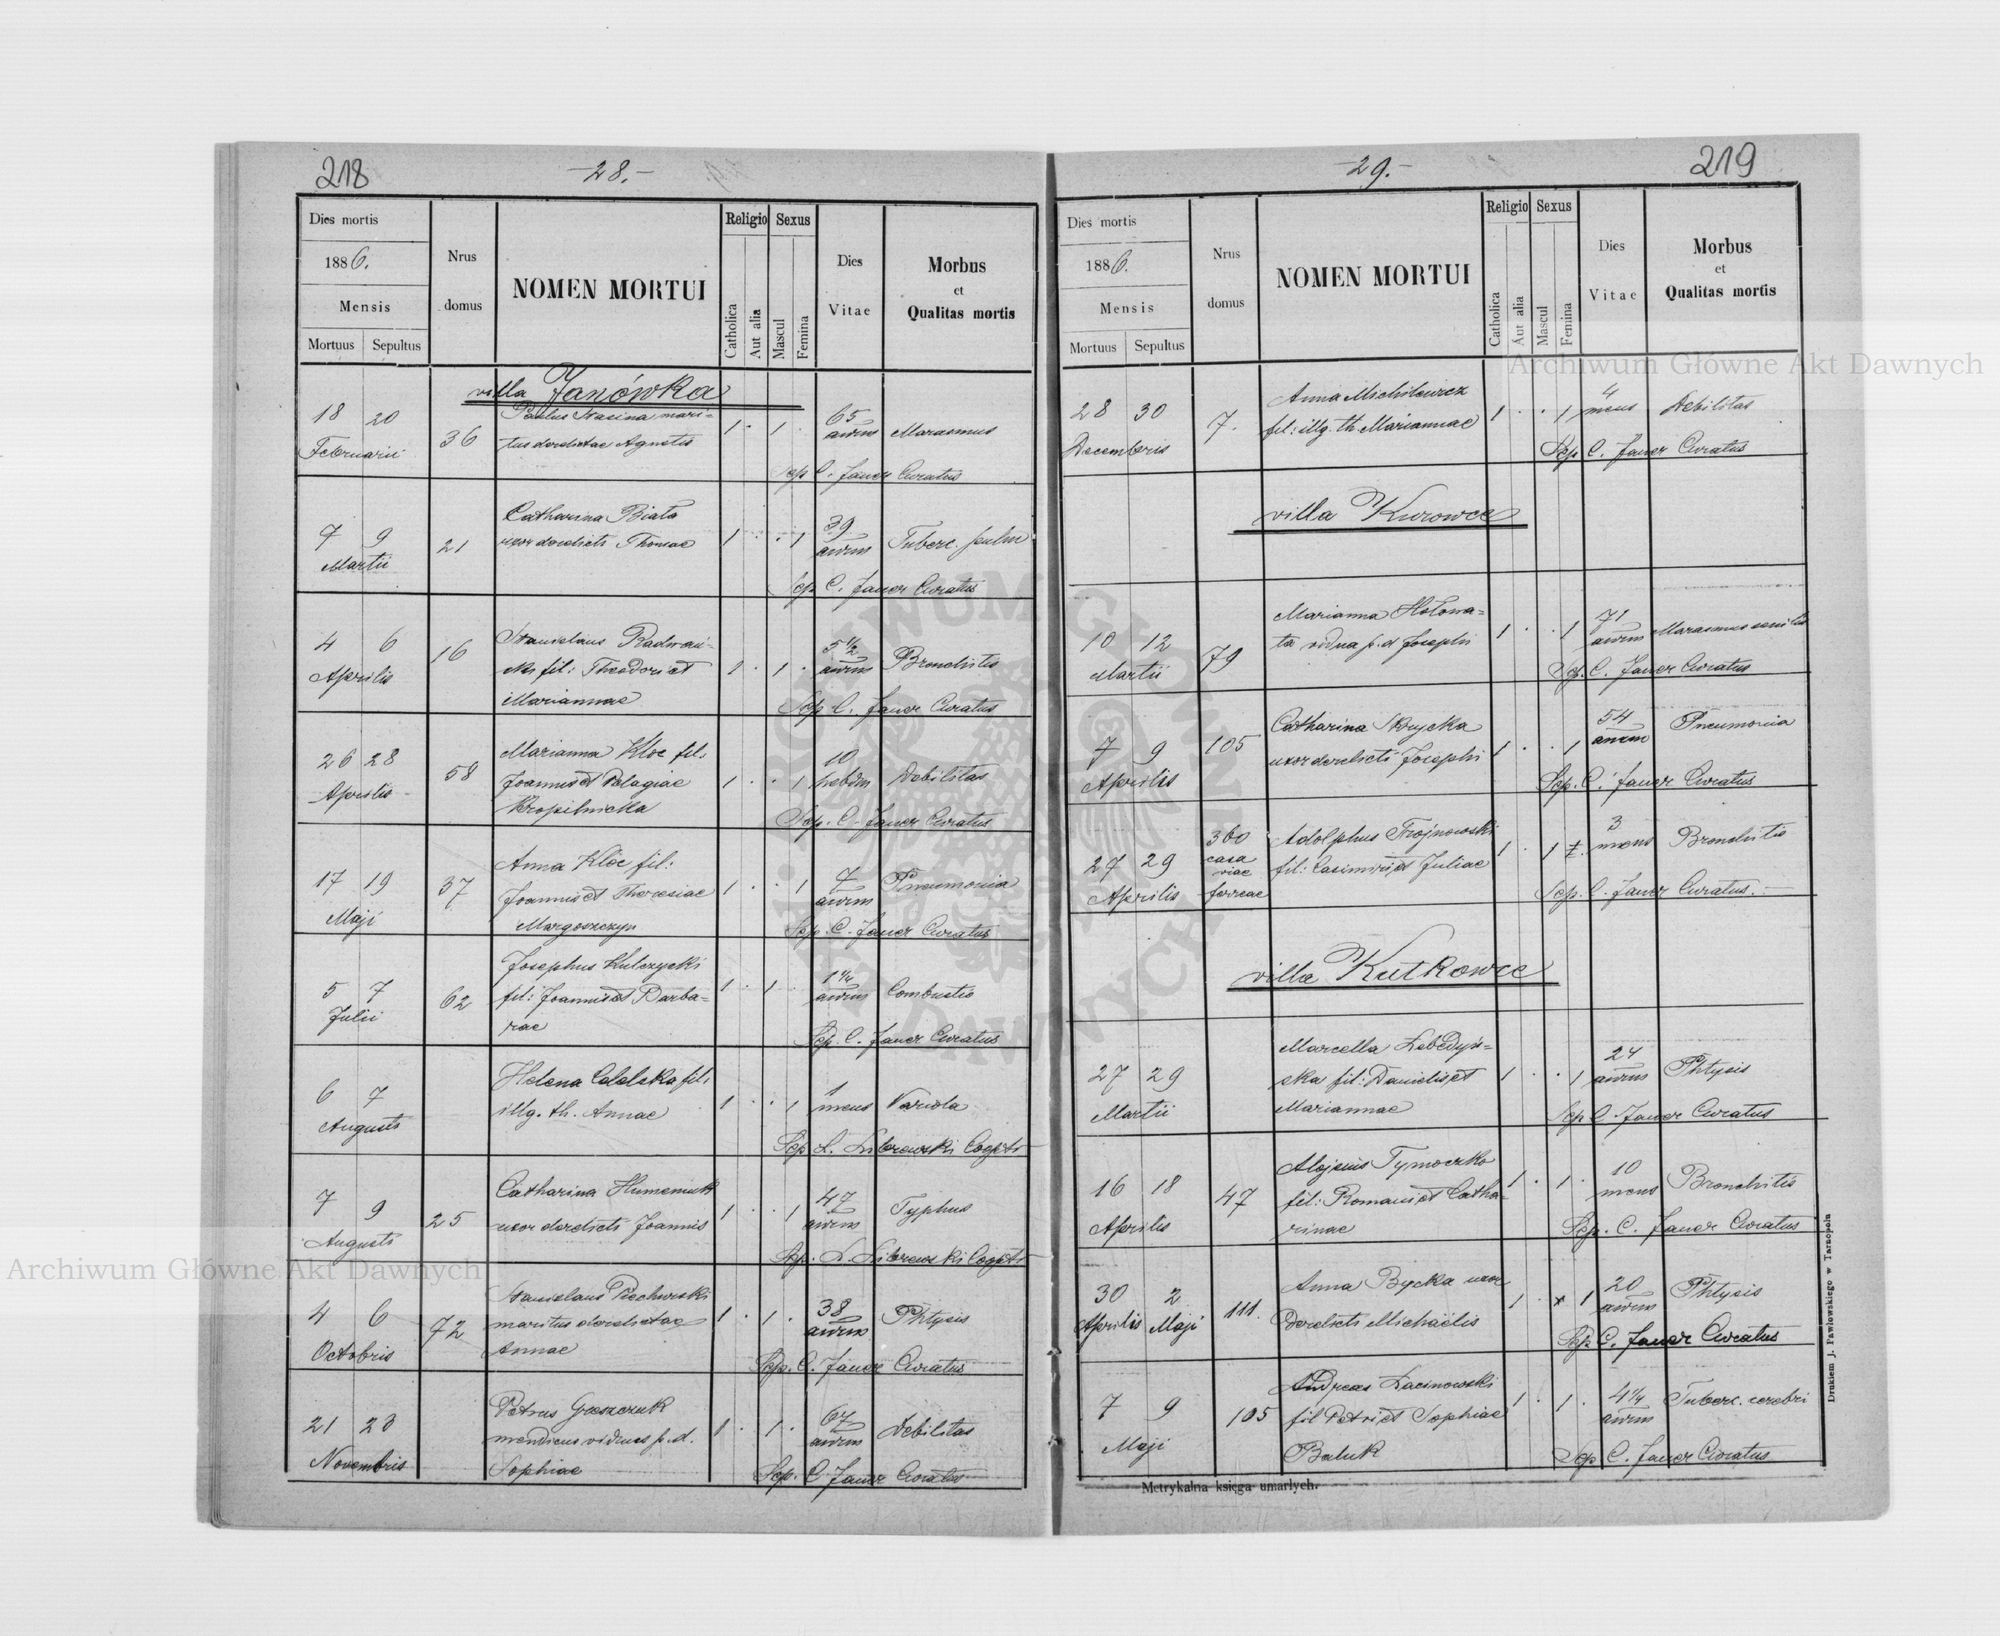 218
-28.-
Dies mortis
1886.
Mensis
Mortuus Sepultus
Nrus
domus
NOMEN MORTUI
Religio
Catholica
Aut alia
Sexus
Mascul
Femina
Dies
Vitae
Morbus
et
Qualitas mortis
villa Janówka
18 20
Februarii
36
Paulus Stasina mari=
tus derelictae Agnetis
1 . 1 .
65
annus
Marasmus
Sep C. Janer Curatus
7 9
Martii
21
Catharina Biała
uxor derelicti Thomae
1 . . 1
39
annus
Tuberc. pulm
Sep C. Janer Curatus
4 6
Aprilis
16
Stanislaus Radwań=
ski fil: Theodori et
Mariannae
1 . 1 .
5 1/2
annus
Bronchitis
Sep C. Janer Curatus
26 28
Aprilis
58
Marianna Kloc fil:
Joannis et Pelagiae
Kropilnicka
1 . . 1
10
hebdm
Debilitas
Sep. C. Janer Curatus
17 19
Maji
37
Anna Kloc fil:
Joannis et Theresiae
Margoszczyn
1 . . 1
7
annus
Pneumonia
Sep. C. Janer Curatus
5 7
Julii
62
Josephus Kulczycki
fil: Joannis et Barba=
rae
1 . 1 .
1 1/4
annus
Combustio
Sep. C. Janer Curatus
6 7
Augusti
Helena fil:
illg. th. Annae
1 . . 1
1
mens
Variola
Sep. L.
7 9
Augusti
25
Catharina Humeniuk
uxor derelicti Joannis
1 . . 1
47
annus
Typhus
Sep. L.
4 6
Octobris
72
Stanislaus Piechurski
maritus derelictae
Annae
1 . 1 .
38
annus
Phtysis
Sep. C. Janer Curatus
21 23
Novembris
Petrus
mendicus viduus p. d.
Sophiae
1 . 1 .
67
annus
Debilitas
Sep. C Janer Curatus
219
-29.-
Dies mortis
1886.
Mensis
Mortuus Sepultus
Nrus
domus
NOMEN MORTUI
Religio
Catholica
Aut alia
Sexus
Mascul
Femina
Dies
Vitae
Morbus
et
Qualitas mortis
28 30
Decembris
7.
Anna Michilewicz
fil: illg. th. Mariannae
1 . . 1
4
mens
Debilitas
Sep C. Janer Curatus
villa Kurowce
10 12
Martii
79
Marianna Hołowa=
ta vidua p. d Josephi
1 . . 1
71
annus
Marasmus senilis
Sep. C. Janer Curatus
7 9
Aprilis
105
Catharina
uxor derelicti Josephi
1 . . 1
54
annus
Pneumonia
Sep. C. Janer Curatus
27 29
Aprilis
360
casa
viae
ferreae
Adolphus Trojnowski
fil: Casimiri et Juliae
1 . 1
3
mens
Bronchitis
Sep. C. Janer Curatus.
villa Kutkowce
27 29
Martii
Marcella Lebedyń=
ska fil: Danielis et
Mariannae
1 . . 1
24
annus
Phtysis
Sep C. Janer Curatus
16 18
Aprilis
47
Alojsius Tymoczko
fil: Romani et Catha=
rinae
1 . 1 .
10
mens
Bronchitis
Sep. C. Janer Curatus
30 2
Aprilis Maji
111.
Anna Bycka uxor
derelicti Michaëlis
1 . x 1
20
annus
Phtysis
Sep C. Janer Curatus
7 9
Maji
105
Andreas Lacinowski
fil Petri et Sophiae
Baluk
1 . 1 .
4 1/4
annus
Tuberc. cerebri
Sep C. Janer Curatus
Metrykalna księga umarłych.
Drukiem J. Pawłowskiego w Tarnopolu
Archiwum Główne Akt Dawnych
Archiwum Główne Akt Dawnych
ARCHIWUM GŁÓWNE AKT DAWNYCH